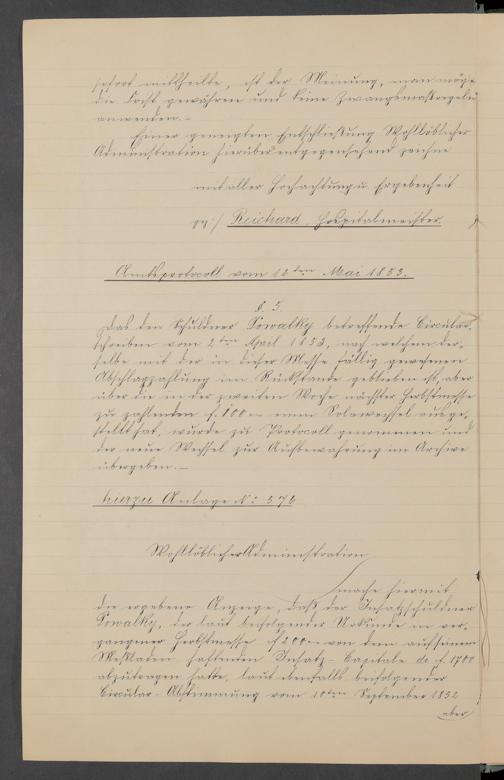 sofort mittheilte, ist der Meinung, man möge
die Frist gewähren und keine Zwangsmaßregeln
anwenden.-
Einer geneigten Entschließung Wohllöblicher
Administration hierüber entgegensehend zeichne
mit aller Hochachtung u. Ergebenheit
gez:/ Reichard Hospitalmeister.
Amtsprotocoll vom 12ten Mai 1853.
§. 3.
Das den Schuldner Powalky betreffende Circular-
schreiben vom 2ten April 1853, nach welchem der-
selbe mit der in dieser Messe fällig gewesenen
Abschlagszahlung im Rückstande geblieben ist, aber
über die in der zweiten Woche nächster Herbstmesse
zu zahlenden f. 100 einen Solawechsel ausge-
stellt hat, wurde zu Protocoll genommen und
der neue Wechsel zur Aufbewahrung im Archive
übergeben.-
hierzu Anlage N: 576
Wohllöblicher Administration
mache hiermit
die ergebene Anzeige, daß der Insatzschuldner
Powalky, der laut beifolgender Urkunde in ver-
gangener Herbstmesse f 200 von dem auf seinem
Meßladen haftenden Insatz-Capitale de f. 1700
abzutragen hatte, laut ebenfalls beifolgender
Circular-Abstimmung vom 10ten September 1852
aber